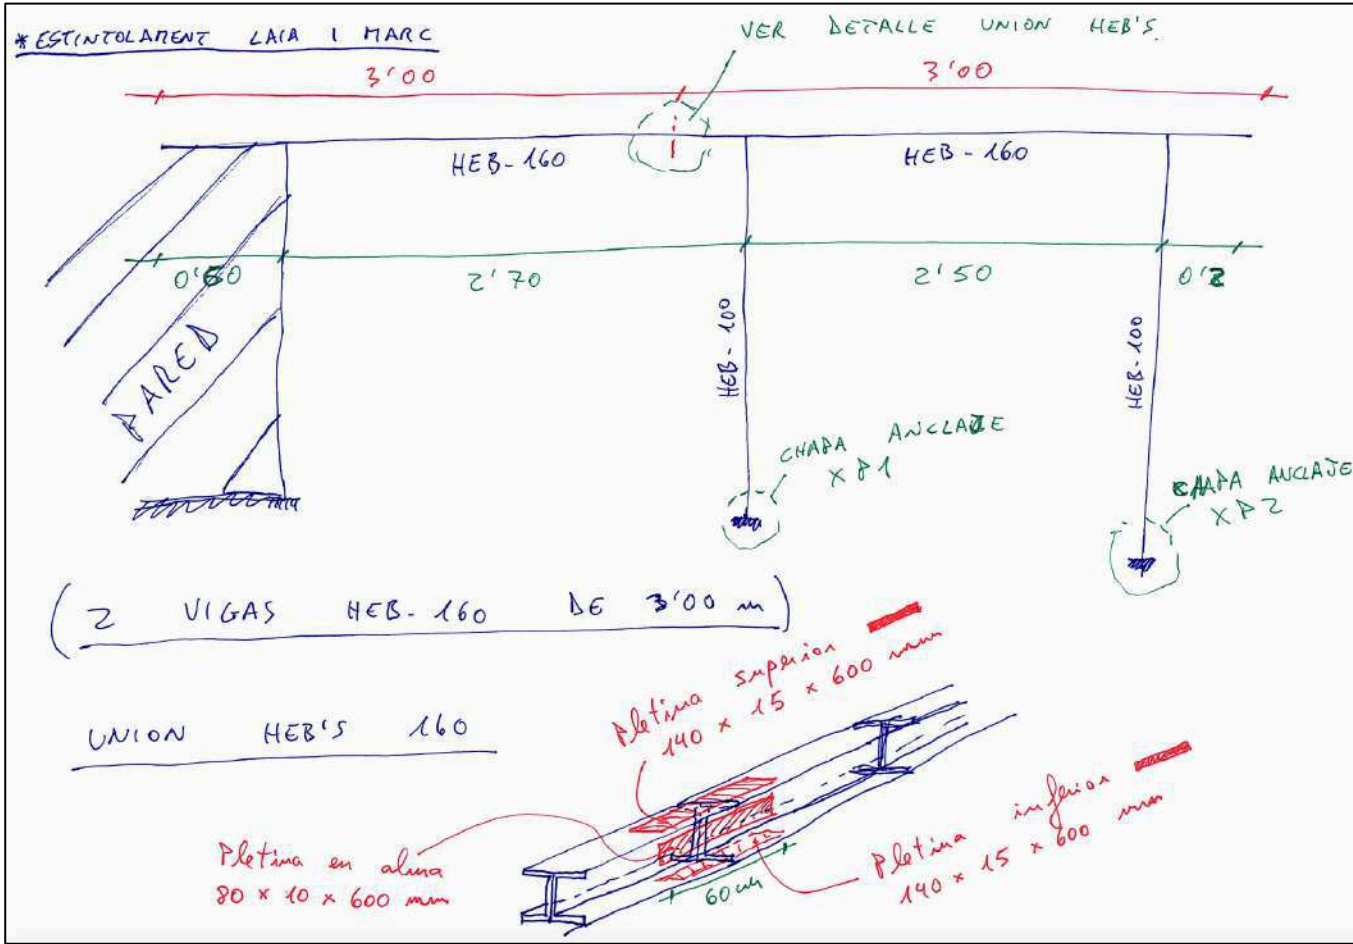 * ESTINTOLAMENT LAIA I MARC
VER DETALLE UNION HEB'S.
3'00
3'00
HEB-160
HEB-160
0'60
2'70
2'50
0'2
PARED
HEB-100
HEB-100
CHAPA ANCLAJE
XP1
CHAPA ANCLAJE
XP2
(2 VIGAS HEB-160 DE 3'00 m)
UNION HEB'S 160
Pletina superior
140 x 15 x 600 mm
Pletina en alma
80 x 10 x 600 mm
60 cm
Pletina inferior
140 x 15 x 600 mm